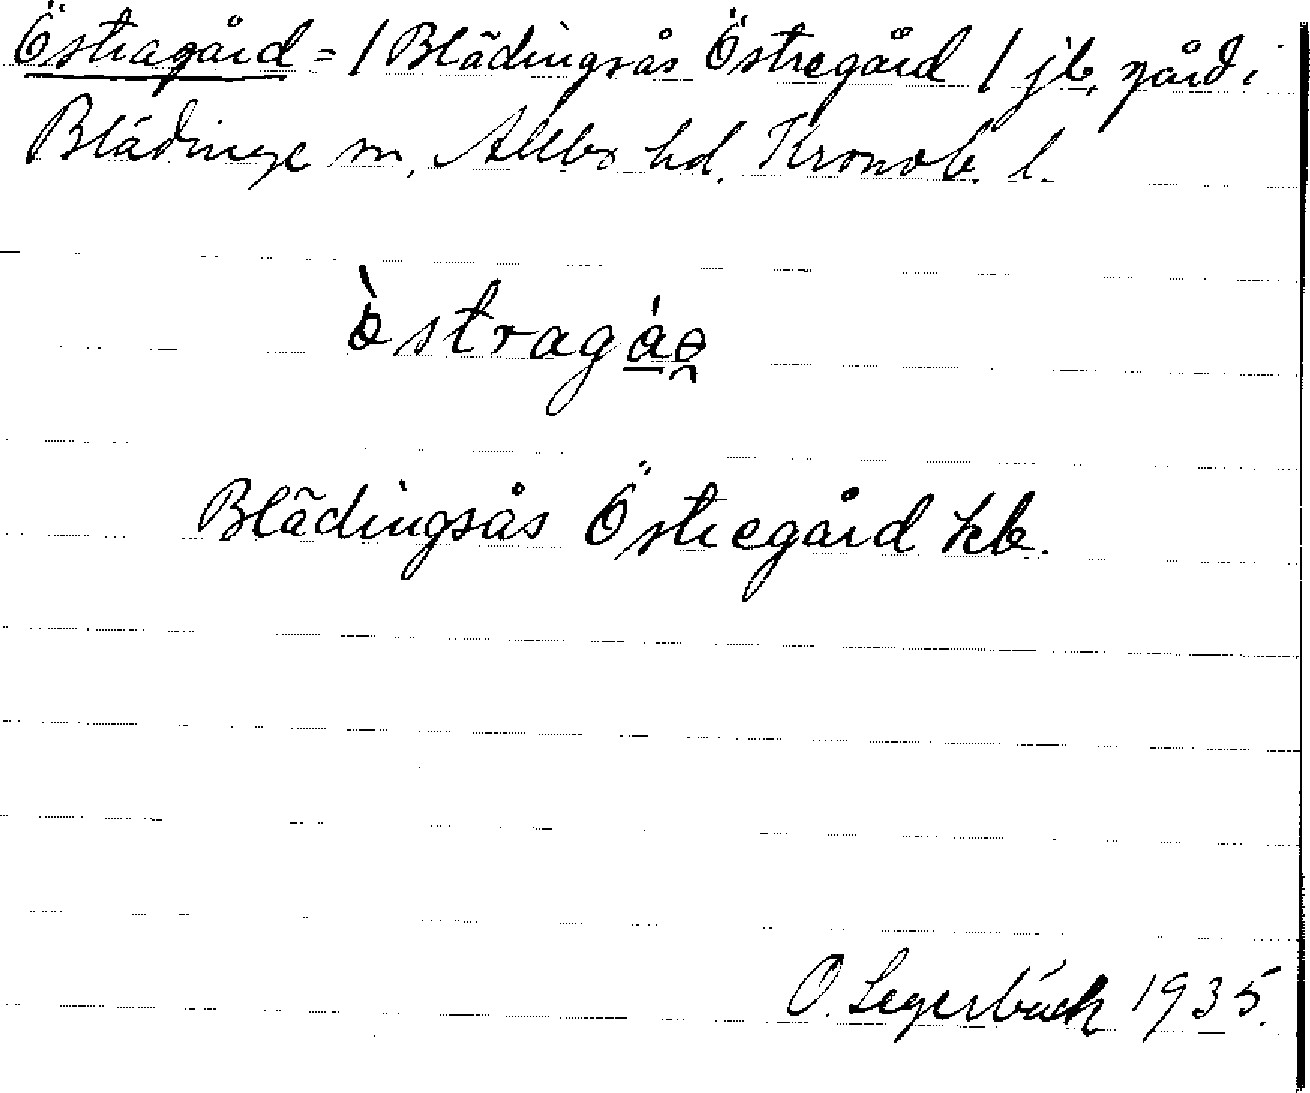 Östragård = / Blädingsås Östregård / jb. gård i
Blädinge sn, Allbo hd. Kronob. l.
östragáə
Blädingsås Östregård kb.
O. Segerbäck 1935.